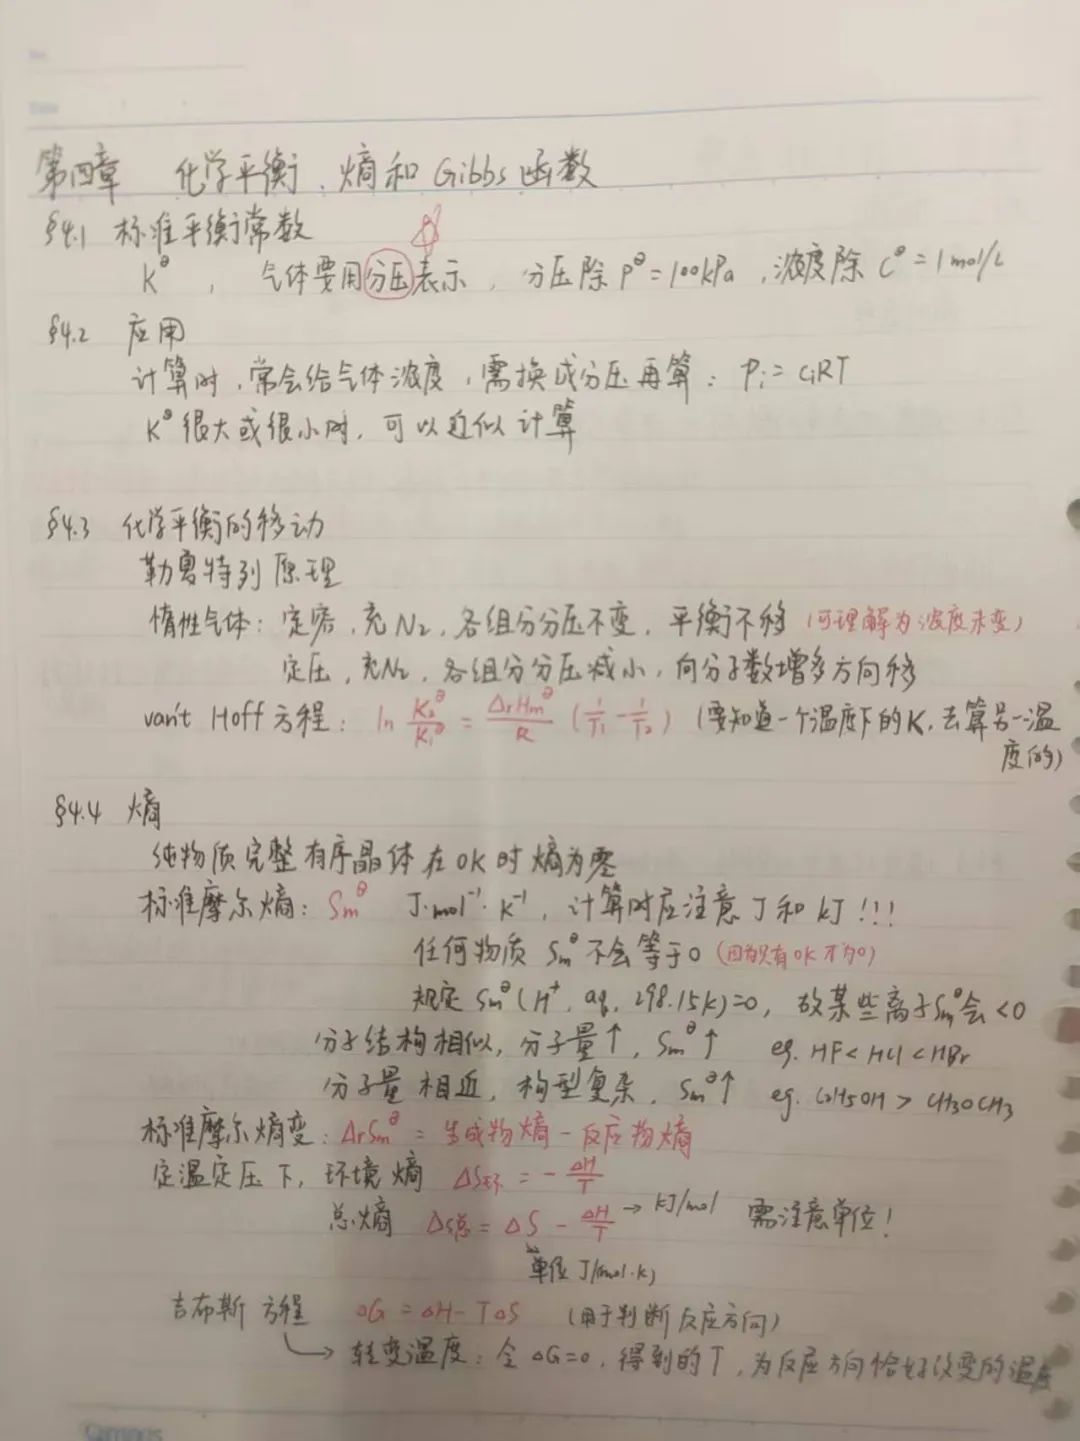 第四章 化学平衡、熵和Gibbs函数
§4.1 标准平衡常数
K^θ, 气体要用分压表示, 分压除P^θ=100kPa, 浓度除C^θ=1mol/L
§4.2 应用
计算时, 常会给气体浓度, 需换成分压再算: Pi=ciRT
K^θ很大或很小时, 可以近似计算
§4.3 化学平衡的移动
勒夏特列原理
惰性气体: 定容, 充N2, 各组分分压不变, 平衡不移 (可理解为浓度未变)
定压, 充N2, 各组分分压减小, 向分子数增多方向移
van't Hoff方程: ln K2^θ/K1^θ = ΔrHm^θ/R (1/T1 - 1/T2) (要知道一个温度下的K, 去算另一温
度的)
§4.4 熵
纯物质完整有序晶体在0K时熵为零
标准摩尔熵: Sm^θ J·mol⁻¹·K⁻¹, 计算时应注意J和kJ!!!
任何物质Sm^θ不会等于0 (因为只有0K才为0)
规定Sm^θ(H⁺, aq, 298.15K)=0, 故某些离子Sm^θ会<0
分子结构相似, 分子量↑, Sm^θ↑ eg. HF<HCl<HBr
分子量相近, 构型复杂, Sm^θ↑ eg. C2H5OH > CH3OCH3
标准摩尔熵变: ΔrSm^θ = 生成物熵-反应物熵
定温定压下, 环境熵 ΔS环 = -ΔH/T
总熵 ΔS总 = ΔS - ΔH/T → kJ/mol 需注意单位!
单位J/(mol·K)
吉布斯方程 ΔG=ΔH-TΔS (用于判断反应方向)
→ 转变温度: 令ΔG=0, 得到的T, 为反应方向恰好改变的温度
Campus